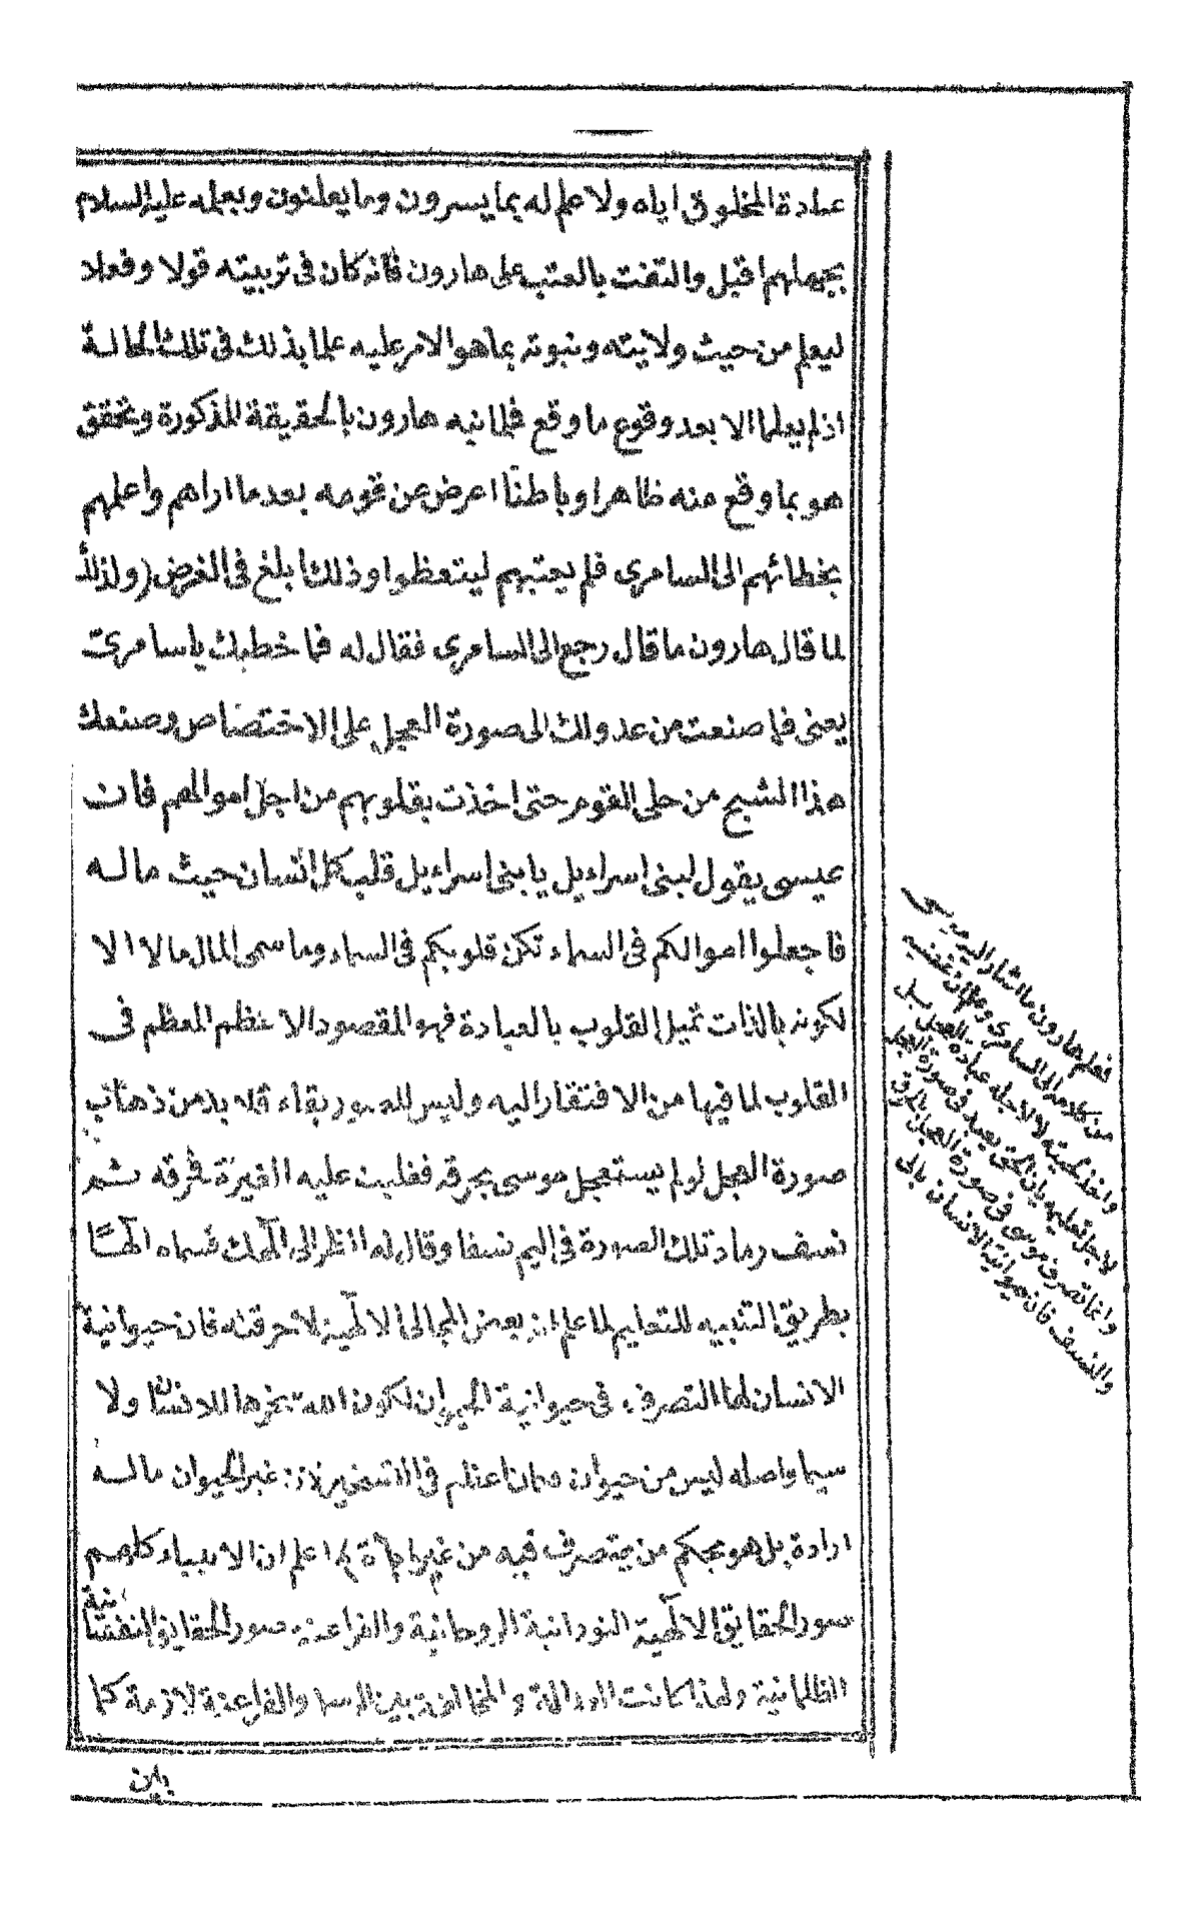 عبادة المخلوق اياه ولا علم له بما يسرون وما يعلنون وبعلمه عليه السلام
بجهلهم اقبل والتفت بالعتب على هارون فانه كان فى تربيته قولا وفعلا
ليعلم من حيث ولايته ونبوته بما هو الامر عليه علما بذلك فى تلك الحالة
اذ لم يعلما الا بعد وقوع ما وقع فلما نبه هارون بالحقيقة المذكورة وتحقق
هو بما وقع منه ظاهرا وباطنا اعرض عن قومه بعد ما اراهم واعلمهم
بخطائهم الى السامرى فلم يجتبهم ليتعظوا وذلك ابلغ فى الغرض (ولذلك
لما قال هارون ما قال رجع الى السامرى فقال له فما خطبك ياسامرى
يعنى فما صنعت من عدولك الى صورة العجل على الاختصاص وصنعك
هذا الشبح من حلى القوم حتى اخذت بقلوبهم من اجل اموالهم فان
عيسى يقول لبنى اسراءيل يابنى اسراءيل قلب كل انسان حيث ماله
فاجعلوا اموالكم فى السماء تكن قلوبكم فى السماء وما سمى المال مالا الا
لكونه بالذات تميل القلوب بالعبادة فهو المقصود الاعظم المعظم فى
القلوب لما فيها من الافتقار اليه وليس للصور بقاء فلا بد من ذهاب
صورة العجل لو لم يستعجل موسى بحرقه فغلبت عليه الغيرة فحرقه ثم
نسف رماد تلك الصورة فى اليم نسفا وقال له انظر الى الهك فسماه الها
بطريق التنبيه للتعليم لما علم ان بعض المجالى الالهية لاحرقنه فان حيوانية
الانسان لها التصرف فى حيوانية الحيوان لكون الله سخرها للانسان ولا
سيما واصله ليس من حيوان فكان اعظم فى التسخير لان غير الحيوان ماله
ارادة بل هو بحكم من يتصرف فيه من غير اباءة ثم اعلم ان الانبياء كلهم
صور الحقايق الالهية النورانية الروحانية والفراعنة صور الحقايق النفسانية
الظلمانية ولهذا كانت العداوة والمخالفة بين الرسل والفراعنة لازمة كما
بين
فعلم هارون ما اشار اليه موسى
من كلامه الى السامرى وعلم ان غضبه
واخذ لحيته لا لاجله عبادة العجل بل
لاجل تعليمه بان الحق يعبد فى صورة العجل
وانما تصرف موسى فى صورة العجل بالحرق
والنسف فان حيوانية الانسان بالى